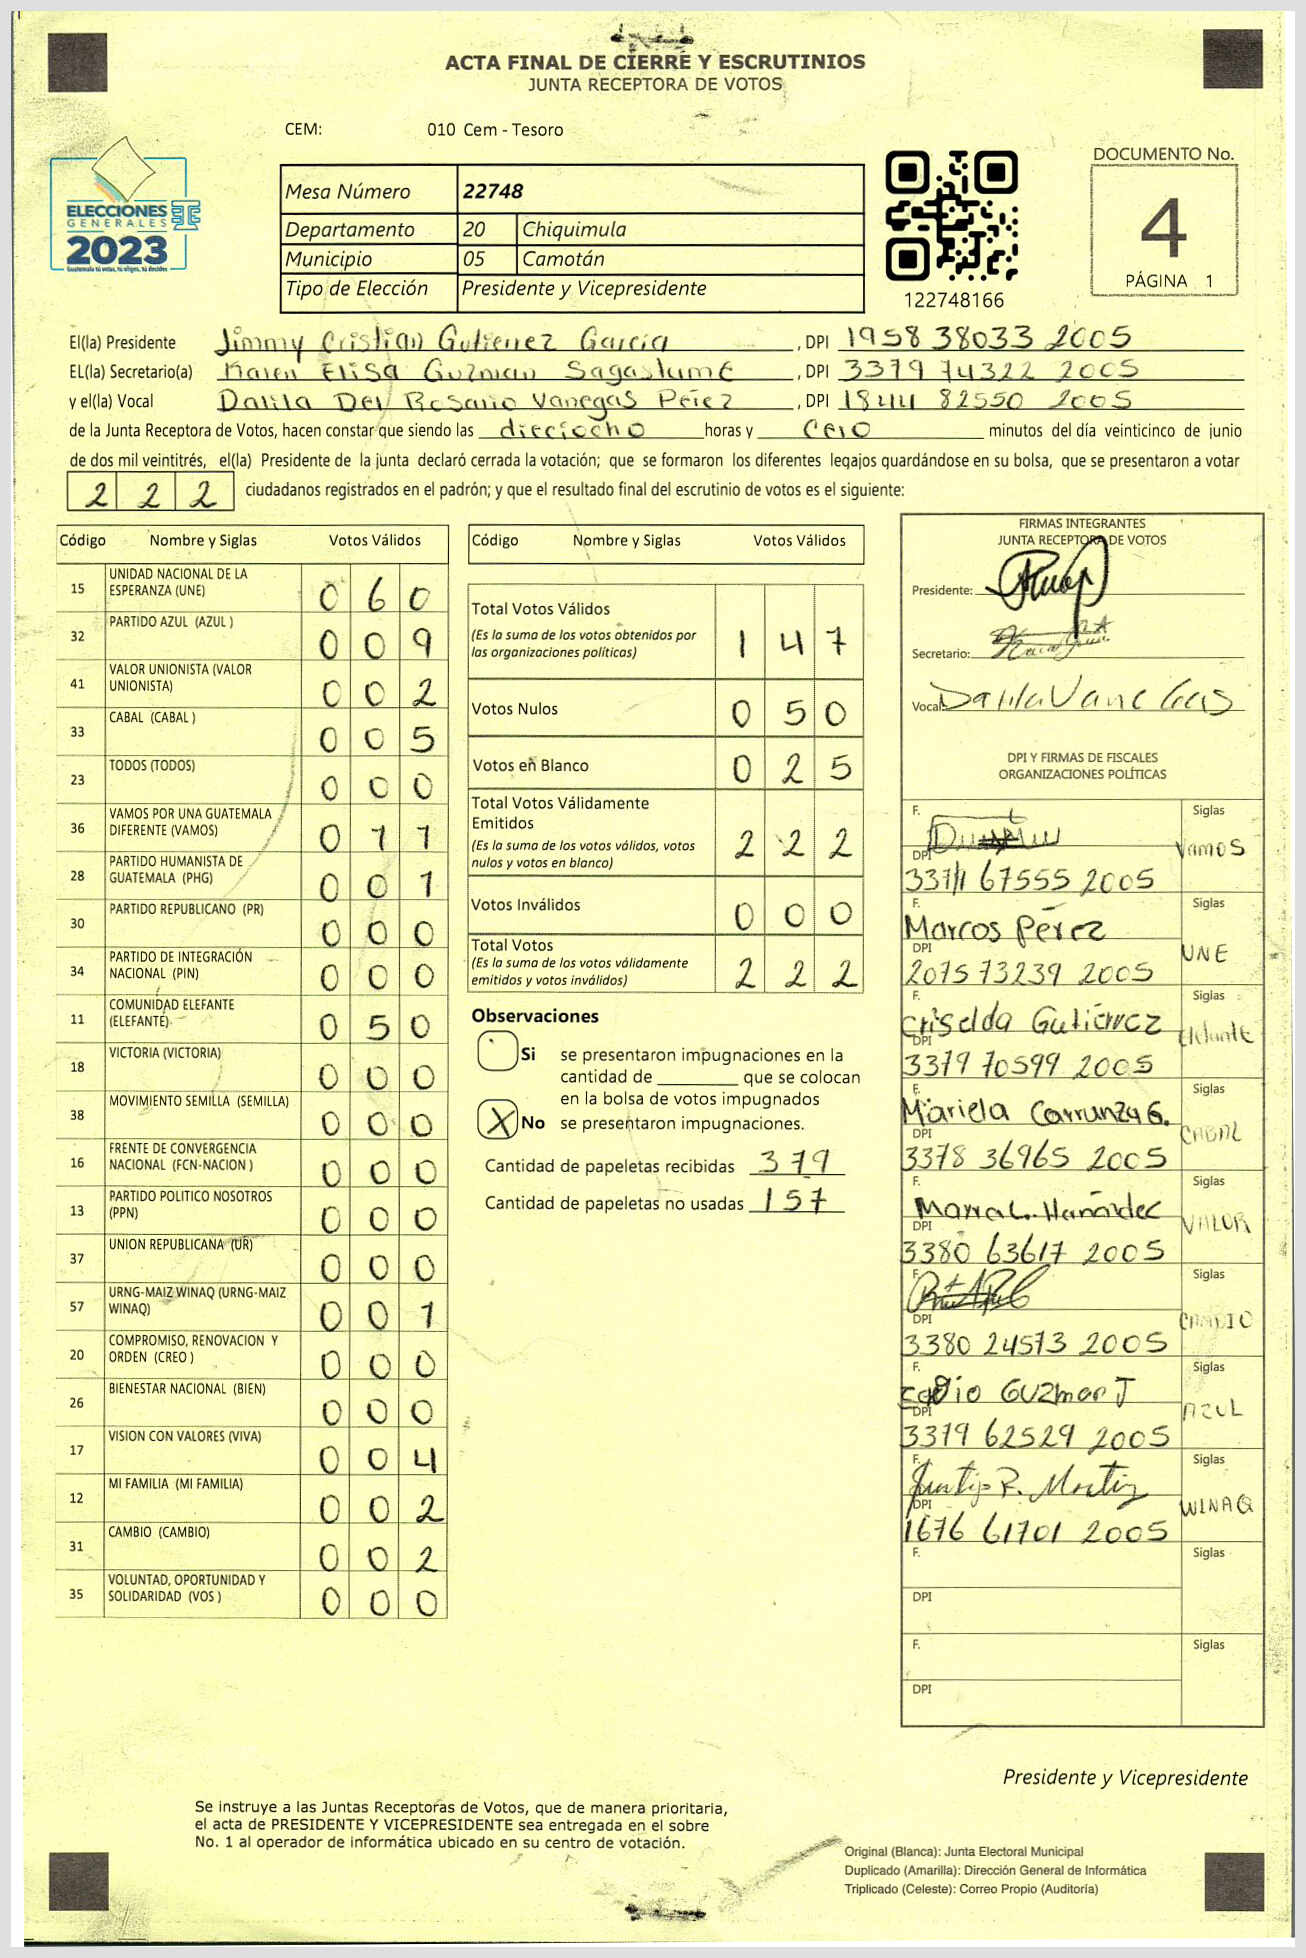 ACTA FINAL DE CIERRE Y ESCRUTINIOS
JUNTA RECEPTORA DE VOTOS
CEM: 010 Cem - Tesoro
ELECCIONES
GENERALES
2023
Guatemala tú votas, tú eliges, tú decides
Mesa Número 22748
Departamento 20 Chiquimula
Municipio 05 Camotán
Tipo de Elección Presidente y Vicepresidente
122748166
DOCUMENTO No.
4
PÁGINA 1
El(la) Presidente Jimmy Cristian Gutierrez García , DPI 1958 38033 2005
EL(la) Secretario(a) Karen Elisa Guzman Sagastume , DPI 3379 74322 2005
y el(la) Vocal Dalila Del Rosario Vanegas Pérez , DPI 1844 82550 2005
de la Junta Receptora de Votos, hacen constar que siendo las dieciocho horas y cero minutos del día veinticinco de junio
de dos mil veintitrés, el(la) Presidente de la junta declaró cerrada la votación; que se formaron los diferentes legajos guardándose en su bolsa, que se presentaron a votar
2 2 2 ciudadanos registrados en el padrón; y que el resultado final del escrutinio de votos es el siguiente:
Código Nombre y Siglas Votos Válidos
15 UNIDAD NACIONAL DE LA ESPERANZA (UNE) 0 6 0
32 PARTIDO AZUL (AZUL ) 0 0 9
41 VALOR UNIONISTA (VALOR UNIONISTA) 0 0 2
33 CABAL (CABAL ) 0 0 5
23 TODOS (TODOS) 0 0 0
36 VAMOS POR UNA GUATEMALA DIFERENTE (VAMOS) 0 1 1
28 PARTIDO HUMANISTA DE GUATEMALA (PHG) 0 0 1
30 PARTIDO REPUBLICANO (PR) 0 0 0
34 PARTIDO DE INTEGRACIÓN NACIONAL (PIN) 0 0 0
11 COMUNIDAD ELEFANTE (ELEFANTE) 0 5 0
18 VICTORIA (VICTORIA) 0 0 0
38 MOVIMIENTO SEMILLA (SEMILLA) 0 0 0
16 FRENTE DE CONVERGENCIA NACIONAL (FCN-NACION ) 0 0 0
13 PARTIDO POLITICO NOSOTROS (PPN) 0 0 0
37 UNION REPUBLICANA (UR) 0 0 0
57 URNG-MAIZ WINAQ (URNG-MAIZ WINAQ) 0 0 1
20 COMPROMISO, RENOVACION Y ORDEN (CREO ) 0 0 0
26 BIENESTAR NACIONAL (BIEN) 0 0 0
17 VISION CON VALORES (VIVA) 0 0 4
12 MI FAMILIA (MI FAMILIA) 0 0 2
31 CAMBIO (CAMBIO) 0 0 2
35 VOLUNTAD, OPORTUNIDAD Y SOLIDARIDAD (VOS ) 0 0 0
Código Nombre y Siglas Votos Válidos
Total Votos Válidos
(Es la suma de los votos obtenidos por las organizaciones políticas) 1 4 7
Votos Nulos 0 5 0
Votos en Blanco 0 2 5
Total Votos Válidamente Emitidos
(Es la suma de los votos válidos, votos nulos y votos en blanco) 2 2 2
Votos Inválidos 0 0 0
Total Votos
(Es la suma de los votos válidamente emitidos y votos inválidos) 2 2 2
Observaciones
Si se presentaron impugnaciones en la
cantidad de ________ que se colocan
en la bolsa de votos impugnados
X No se presentaron impugnaciones.
Cantidad de papeletas recibidas 379
Cantidad de papeletas no usadas 157
FIRMAS INTEGRANTES
JUNTA RECEPTORA DE VOTOS
Presidente:
Secretario:
Vocal: Dalila Vanegas
DPI Y FIRMAS DE FISCALES
ORGANIZACIONES POLÍTICAS
F. Siglas
DPI Vamos
67555 2005
F. Marcos Pérez Siglas
DPI UNE
2075 73239 2005
F. Criselda Gutiérrez Siglas
DPI Elefante
3379 70599 2005
F. Mariela Carranza G. Siglas
DPI CABAL
3378 36965 2005
F. Maria L. Hernández Siglas
DPI VALOR
3380 63617 2005
F. Siglas
DPI CAMBIO
3380 24573 2005
F. Guzman J Siglas
DPI AZUL
3379 62529 2005
F. Siglas
DPI WINAQ
1676 61701 2005
F. Siglas
DPI
F. Siglas
DPI
Presidente y Vicepresidente
Se instruye a las Juntas Receptoras de Votos, que de manera prioritaria,
el acta de PRESIDENTE Y VICEPRESIDENTE sea entregada en el sobre
No. 1 al operador de informática ubicado en su centro de votación.
Original (Blanca): Junta Electoral Municipal
Duplicado (Amarilla): Dirección General de Informática
Triplicado (Celeste): Correo Propio (Auditoría)